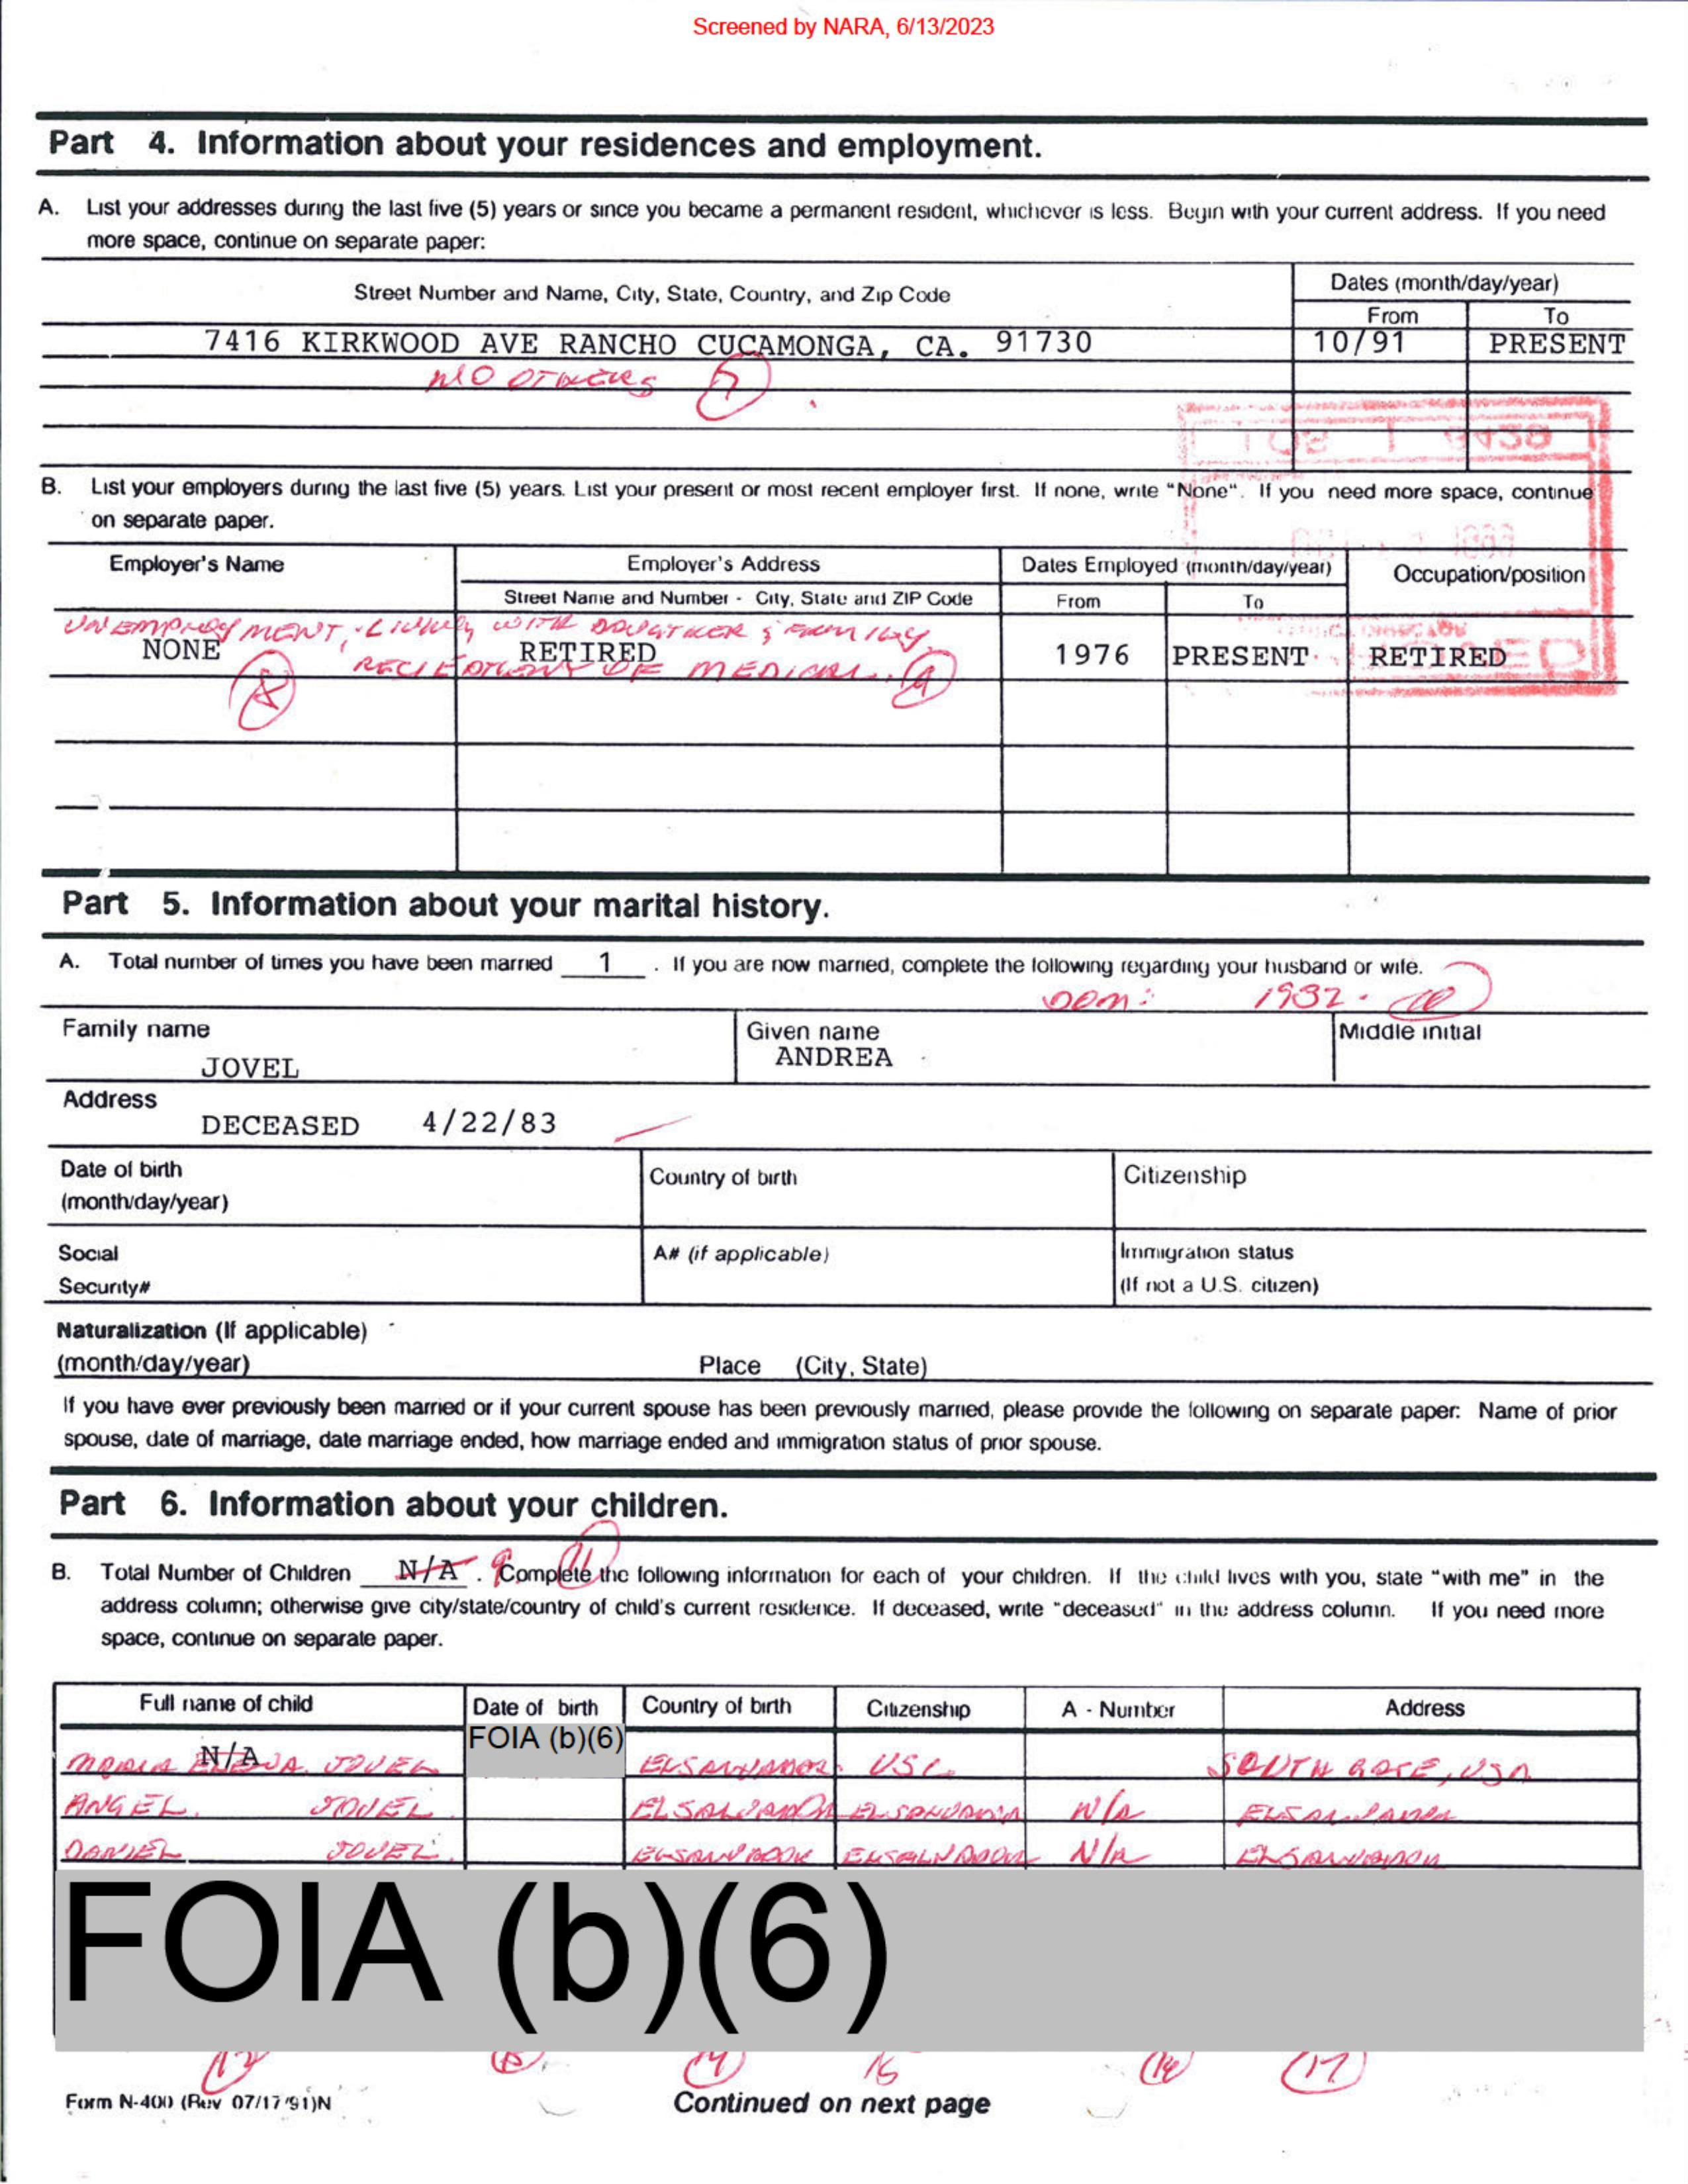 Screened by NARA, 6/13/2023
Part 4. Information about your residences and employment.
A. List your addresses during the last five (5) years or since you became a permanent resident, whichever is less. Begin with your current address. If you need
more space, continue on separate paper:
Street Number and Name, City, State, Country, and Zip Code
Dates (month/day/year)
From To
7416 KIRKWOOD AVE RANCHO CUCAMONGA, CA. 91730 10/91 PRESENT
NO OTHERS 7
B. List your employers during the last five (5) years. List your present or most recent employer first. If none, write "None". If you need more space, continue
on separate paper.
Employer's Name Employer's Address Dates Employed (month/day/year) Occupation/position
Street Name and Number - City, State and ZIP Code From To
UNEMPLOYMENT, LIVING WITH DAUGHTER & FAMILY
NONE RETIRED 1976 PRESENT RETIRED
OF MEDICAL. 9
8
Part 5. Information about your marital history.
A. Total number of times you have been married 1 . If you are now married, complete the following regarding your husband or wife.
DOM: 1932. 10
Family name Given name Middle initial
JOVEL ANDREA
Address
DECEASED 4/22/83
Date of birth Country of birth Citizenship
(month/day/year)
Social A# (if applicable) Immigration status
Security# (If not a U.S. citizen)
Naturalization (If applicable)
(month/day/year) Place (City, State)
If you have ever previously been married or if your current spouse has been previously married, please provide the following on separate paper: Name of prior
spouse, date of marriage, date marriage ended, how marriage ended and immigration status of prior spouse.
Part 6. Information about your children.
B. Total Number of Children N/A . 9 11 Complete the following information for each of your children. If the child lives with you, state "with me" in the
address column; otherwise give city/state/country of child's current residence. If deceased, write "deceased" in the address column. If you need more
space, continue on separate paper.
Full name of child Date of birth Country of birth Citizenship A - Number Address
FOIA (b)(6)
N/A
MARIA ELENA JOVEL EL SALVADOR USC SOUTH GATE, USA
ANGEL JOVEL EL SALVADOR EL SALVADOR N/A EL SALVADOR
DANIEL JOVEL EL SALVADOR EL SALVADOR N/A EL SALVADOR
FOIA (b)(6)
12 13 14 15 16 17
Form N-400 (Rev 07/17/91)N Continued on next page